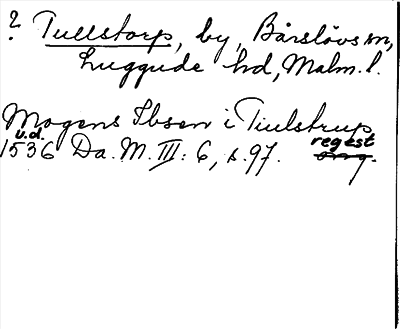 ? Tullstorp, by, Bårslövs sn,
Luggude hd, Malm. l.
Mogens Ibsen i Tiulstrup
u.d.
1536 Da. M. III: 6, s. 97. regest
orig.